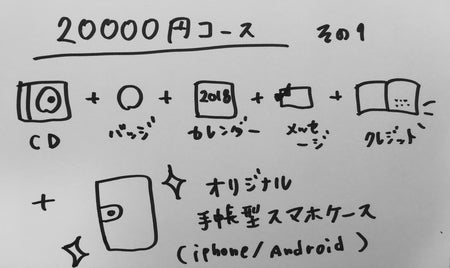 20000円コース その1
2018
CD + バッジ + カレンダー + メッセージ + クレジット
+ オリジナル
手帳型スマホケース
(iphone/Android)